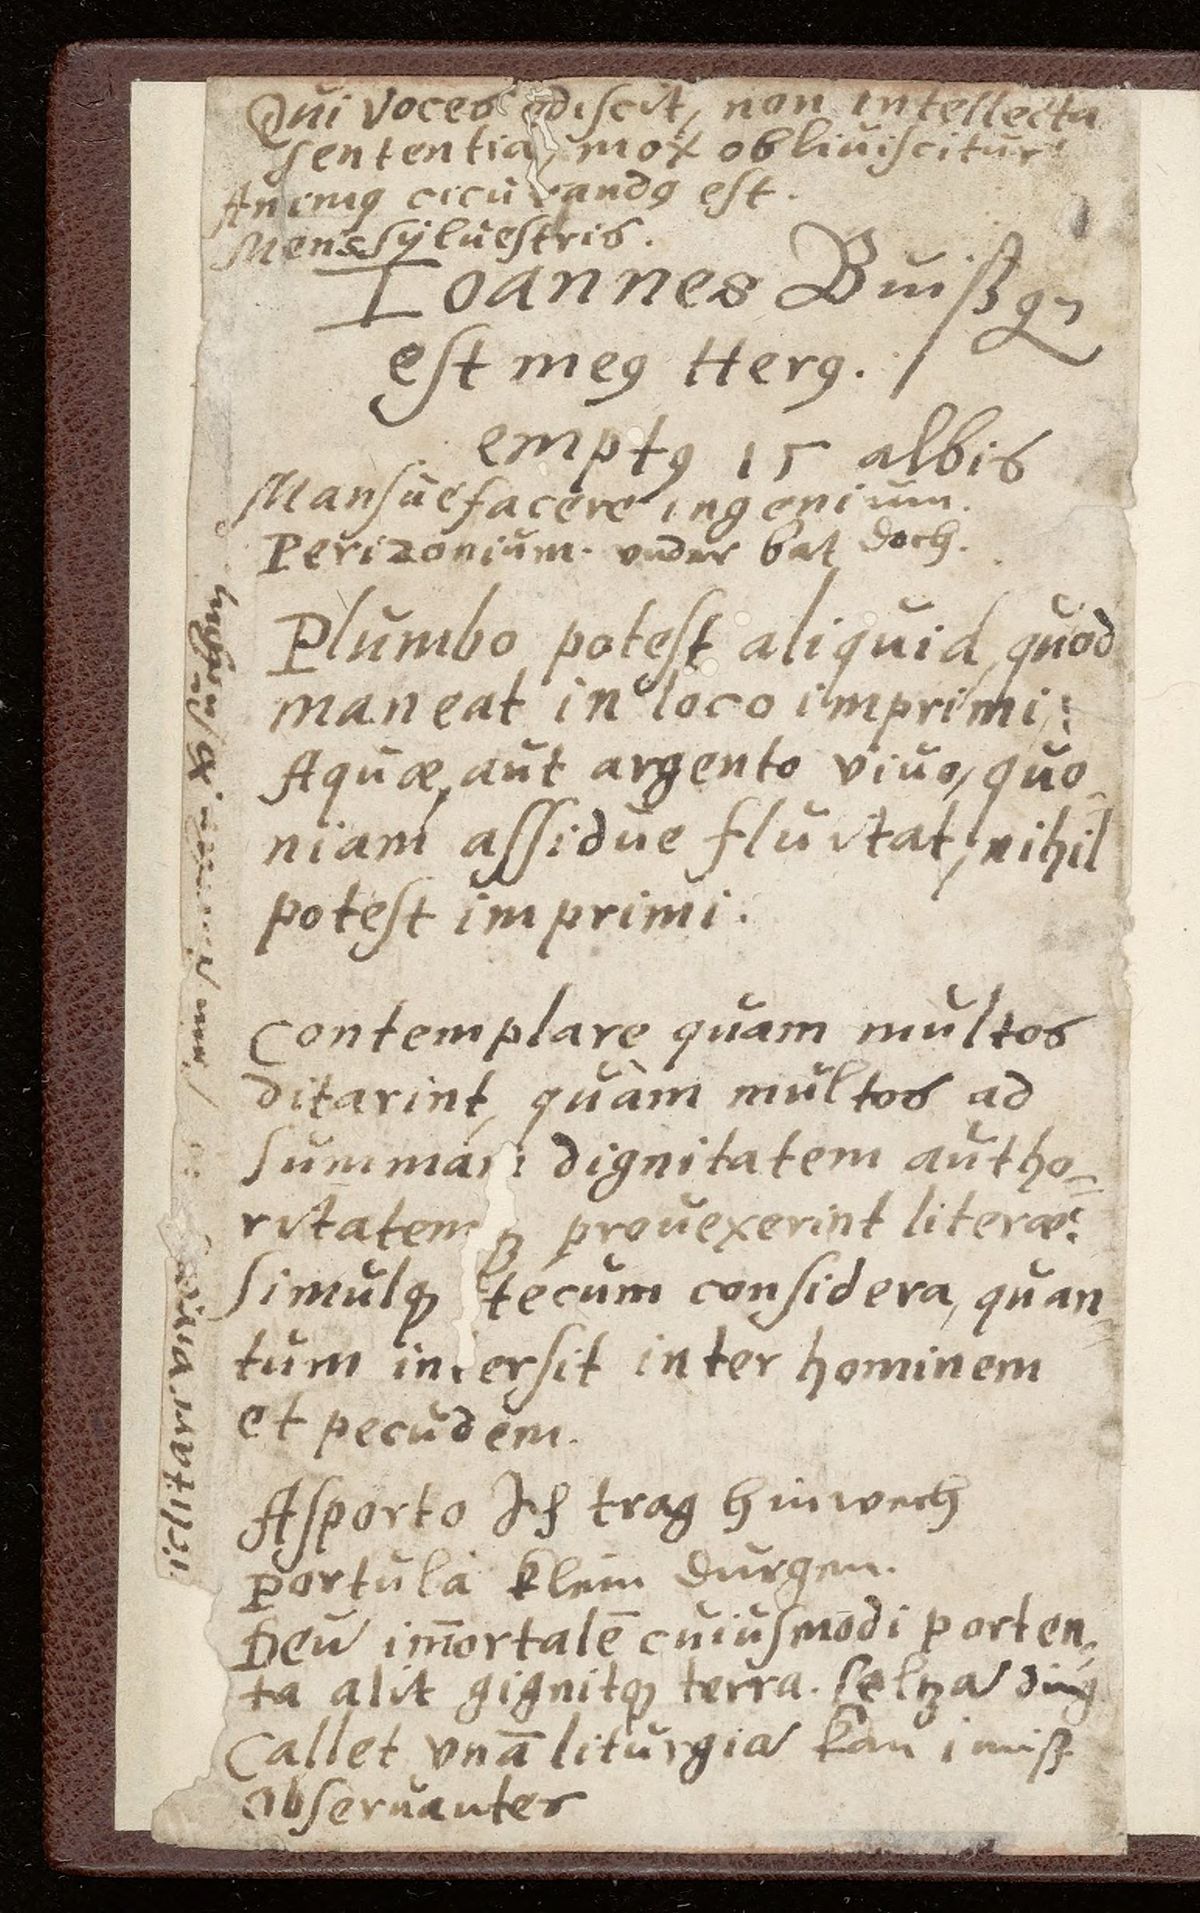 Qui voces ediscit, non intellecta
sententia, mox obliuiscitur
Animꝰ cicurandꝰ est.
Mens syluestris.
Ioannes Buißꝰ
est meꝰ Herꝰ.
emptꝰ 15 albis
Mansuefacere ingenium.
Perizonium. vnder bat doch.
Plumbo potest aliquid, quod
maneat in loco imprimi:
Aquæ, aut argento viuo, quo-
niam assidue fluitat, nihil
potest imprimi.
Contemplare quam multos
ditarint, quàm multos ad
summam dignitatem autho-
ritatemqꝫ prouexerint literæ:
simulqꝫ tecum considera, quan-
tum intersit inter hominem
et pecudem.
Asporto Ich trag hinwech
Portula klein durgen.
Deū im̄ortalē cuiusmodi porten-
ta alit gignitqꝫ terra. seltza ding
Callet vnā liturgiā kan i miß
Obseruantes